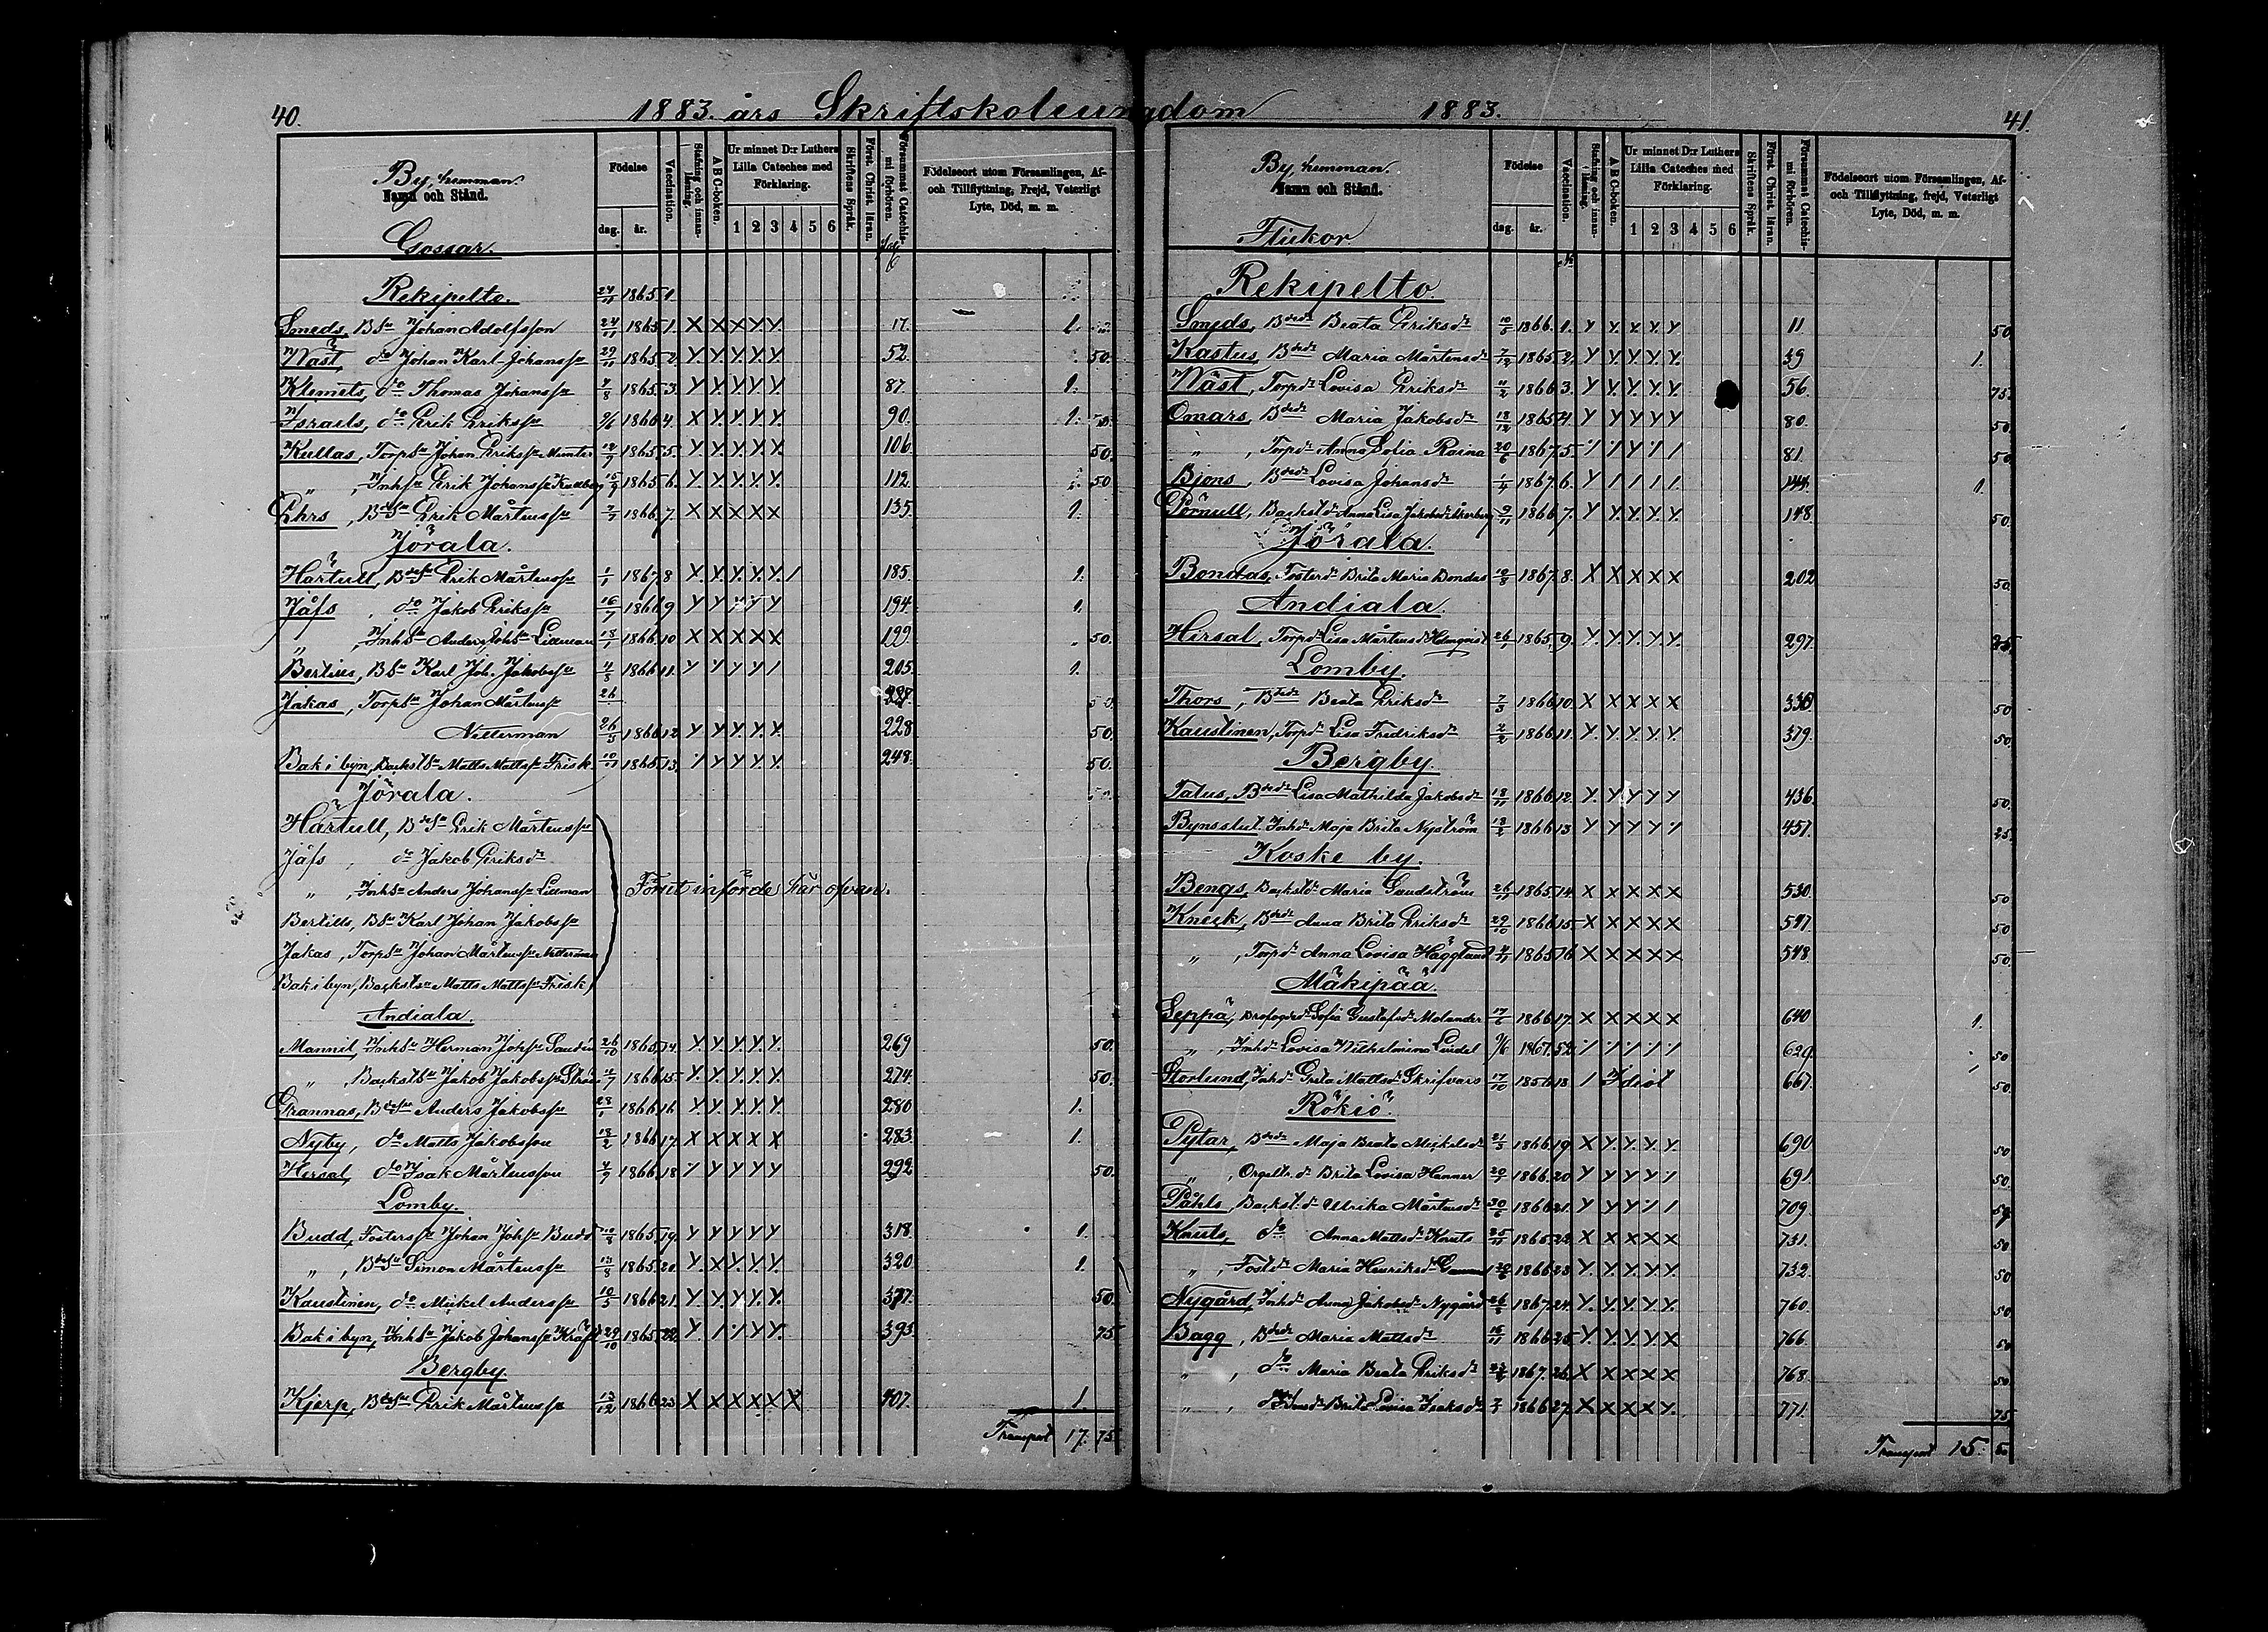 40.
1883. års Skriftskoleungdom
1883.
41.
By, hemman.
Namn och Stånd.
Gossar.
Födelse
dag. år.
Vaccination.
Stafning och innanläsning.
A B C-boken.
Ur minnet D:r Luthers Lilla Cateches med Förklaring.
1 2 3 4 5 6
Skriftens Språk.
Först. Christ. läran.
Försummat Catechismi förhören.
Födelseort utom Församlingen, Af- och Tillflyttning, Frejd, Veterligt Lyte, Död, m. m.
Rekipelto. 24/11 1865 1.
Smeds, Bsn Johan Adolfsson 24/11 1865 1. X X X Y. Y. 17. 1.
Näst, do Johan Karl Johanssn 29/11 1865 2. Y. Y. Y. Y. Y. 52. 50.
Klemets, do Thomas Johanssn 4/8 1865 3. Y. Y. Y. Y. Y. 87. 1.
Israels, do Erik Erikssn 9/6 1866 4. X Y. Y. Y. Y. 90. 1.
Kullas, Torpsn Johan Erikssn Munter 1865 5. Y. Y. Y. Y. Y. 106. 50.
" , Inhsn Erik Johanssn Kullberg 1865 6. Y. Y. Y. Y. Y. 112. 50
Ehrs, Bdesn Erik Mårtenssn 1866 7. X X X X X 135. 1.
Jörala.
Härtull, Bdesn Erik Mårtenssn 1/1 1867 8 X. Y. Y. Y. Y. / 185. 1.
Jåfs, do Jakob Erikssn 16/7 1866 9 Y Y Y Y Y 194. 1.
" , Inhsn Anders Johsn Lillman 18/1 1866 10 X X X X X 199. 50.
Bertils, Bsn Karl Joh. Jakobssn 4/5 1866 11. Y Y Y Y / 205. 1.
Jakas, Torpsn Johan Mårtenssn 26
Netterman 26/5 1866 12 Y Y Y. Y. Y. 228 50.
Bak i byn, Backstsn Matts Mattssn Frisk 10/11 1865 13. / Y Y Y. Y. 248. 50.
Jörala.
Härtull, Bdesn Erik Mårtenssn
Jåfs, do Jakob Eriksdr
" , Inhsn Anders Johanssn Lillman Förut införde här ofvan.
Bertills, Bsn Karl Johan Jakobssn
Jakas, Torpsn Johan Mårtenssn Netterman
Bak i byn, Backstsn Matts Mattssn Frisk
Andiala.
Mannil, Inhsn Herman Johsn Sandin 26/10 1865 14. Y. Y. Y. Y. Y. 269 50.
" , Backstsn Jakob Jakobssn Ström 1866 15. Y. Y. Y. Y. Y. 274. 50.
Grannas, Bdesn Anders Jakobssn 28/1 1866 16 Y Y. Y. Y. Y. 280 1.
Nyby, do Matts Jakobsson 18/2 1866 17. X X X X X 283. 1.
Hersal, do Isak Mårtensson 4/9 1866 18 / Y Y Y Y 292 50.
Lomby.
Budd, Fosterssn Johan Johsn Budd 1865 19. Y Y Y Y Y 318. 1.
" , Bdesn Simon Mårtenssn 1865 20. Y. X Y. Y. Y. 320. 1.
Kaustinen, do Mickel Anderssn 10/5 1866 21. Y. Y. Y. Y. Y. 377. 50.
Bak i byn, Inhsn Jakob Johanssn Kräft 29/10 1865 22. Y / / Y Y. 393. 75
Bergby.
Kjerp, Bdesn Erik Mårtenssn 13/12 1866 23 X X X X X X 407. 1.
Transport 17. 75.
By, hemman.
Namn och Stånd.
Flickor
Födelse
dag. år.
Vaccination.
Stafning och innanläsning.
A B C-boken.
Ur minnet D:r Luthers Lilla Cateches med Förklaring.
1 2 3 4 5 6
Skriftens Språk.
Först. Christ. läran.
Försummat Catechismi förhören.
Födelseort utom Församlingen, Af- och Tillflyttning, frejd, Veterligt Lyte, Död, m. m.
Rekipelto.
Smeds, Bdedr Beata Eriksdr 1866. 1. Y Y. Y. Y. Y 11. 50.
Kastus, Bdedr Maria Mårtensdr 7/12 1865 2. Y Y. Y. Y. Y. 39 1.
Näst, Torpdr Lovisa Eriksdr 11/2 1866 3. Y Y. Y. Y. Y. 56. 75.
Omars, Bdedr Maria Jakobsdr 18/12 1865 4. Y Y Y Y Y 80. 50.
" , Torpdr Anna Sofia Raina 20/6 1867 5. / / Y / / 81. 50.
Bjons, Bdedr Lovisa Johansdr 1/4 1867 6. Y / / / / 144. 1.
Pörnull, Backstdr Anna Lisa Jakobsdr Åkerberg 9/11 1866 7. Y Y. Y. Y. Y. 148. 50.
Jörala.
Bondas, Fosterdr Brita Maria Bondas 10/8 1867 8. X X X X X 202 50.
Andiala.
Hersal, Torpdr Lisa Mårtensd Holmqvist 26/1 1865 9. Y. Y. Y. Y. Y. 297.
Lomby.
Thors, Bdedr Beata Eriksdr 7/3 1866 10. X X X X X 50
Kaustinen, Torpdr Lisa Fredriksdr 2/2 1866 11. Y. Y. Y. Y. Y. 379. 50.
Bergby.
Talus, Bdedr Lisa Mathilda Jakobsdr 18/11 1866 12. Y. Y. Y Y Y 436. 50.
Bynsslut, Inhdr Maja Brita Nyström 1866 13 Y Y Y Y / 457. 25.
Koske by.
Bengs, Backstdr Maria Sandström 26/11 1865 14. X X X X X 530. 50
Kneck, Bdedr Anna Brita Eriksdr 29/10 1866 15. X X X X X 547. 50
" , Torpdr Anna Lovisa Hägglund 1865 16 X X X X X 548. 50.
Mäkipää.
Seppä, Sofia Gustafsdr Molander 17/6 1866 17. X X X X X 640 1.
" , Inhdr Lovisa Wilhelmina Lindel 9/6 1867. 52. / / / / / 629. 50
Storlund, Inhdr Greta Mattsdr Skrifvars 17/10 1856 18 / Idiot 667. 50.
Rökiö.
Pytar, Bdedr Maja Beata Mickelsdr 21/3 1866 19. X Y. Y. Y. Y. 690 50
" , Orgeltr. dr Brita Lovisa Hanner 1866 20 Y Y Y Y / 691. 50.
Påhls, Backst. dr Ulrika Mårtensdr 30/6 1866 21. Y Y Y / / 709.
Knuts, do Anna Mattsdr Knuts 25/11 1865 22. X X X X X 731. 50
" , Fostdr Maria Henriksdr 1866 23 Y. Y. Y. Y. Y. 732. 50
Nygård, Inhdr Anna Jakobsdr Nygård 1867 24. Y. Y. Y. Y. Y. 760. 50.
Bagg, Bdedr Maria Mattsdr 16/11 1866 25. Y. Y. Y. Y. X 766. 50
" , do Maria Beata Eriksdr 1867. 26. X X X X X 768. 50
" , Brita Lovisa Isaksdr 1866 27. X X X X Y. 771. 75
Transport 15. 50